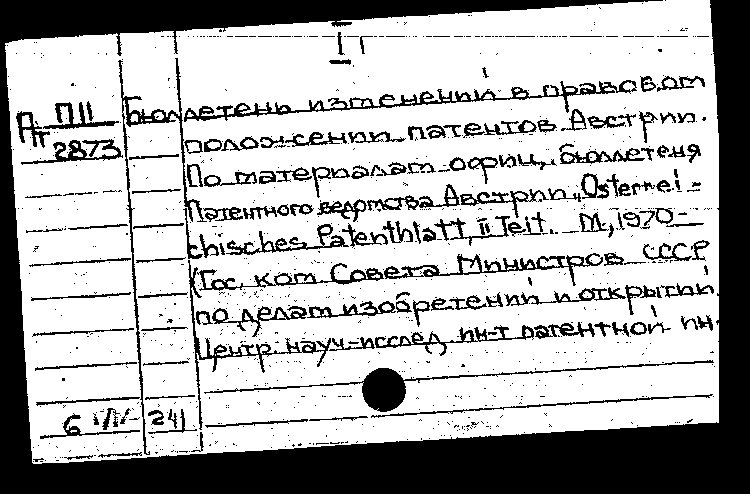 I
Пт П11 Бюллетень изменений в правовом
2873 положении патентов Австрии.
По материалам офиц. бюллетеня
Патентного ведомства Австрии „Österrei-
chisches Patentblatt, II Teil. М, 1970-
(Гос. ком. Совета Министров СССР
по делам изобретений и открытий.
Центр. науч-исслед. ин-т патентной ин-
6 241